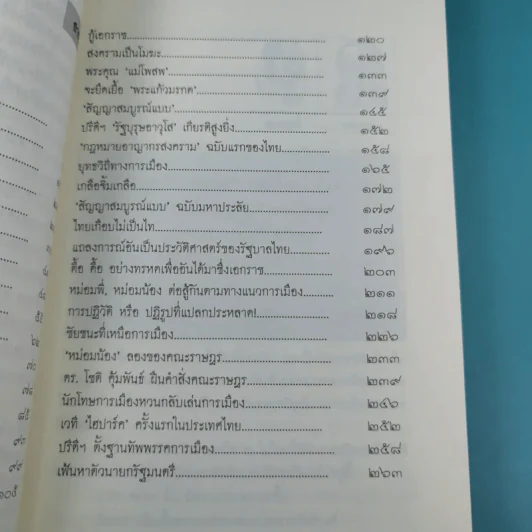 กู้เอกราช........ ๑๒๐
สงครามเป็นโมฆะ........ ๑๒๗
พระคุณ 'แม่โพสพ'........ ๑๓๓
จะยึดเยื้อ 'พระแก้วมรกต'........ ๑๓๙
'สัญญาสมบูรณ์แบบ'........ ๑๔๕
ปรีดีฯ 'รัฐบุรุษอาวุโส' เกียรติสูงยิ่ง........ ๑๕๒
'กฎหมายอาญากรสงคราม' ฉบับแรกของไทย........ ๑๕๘
ยุทธวิถีทางการเมือง........ ๑๖๕
เกลือจิ้มเกลือ........ ๑๗๒
'สัญญาสมบูรณ์แบบ' ฉบับมหาประลัย........ ๑๗๙
ไทยเกือบไม่เป็นไท........ ๑๘๗
แถลงการณ์อันเป็นประวัติศาสตร์ของรัฐบาลไทย........ ๑๙๖
ดื้อ ดื้อ อย่างทรหดเพื่ออันได้มาซึ่งเอกราช........ ๒๐๓
หม่อมพี่, หม่อมน้อง ต่อสู้กันตามทางแนวการเมือง........ ๒๑๑
การปฏิวัติ หรือ ปฏิรูปที่แปลกประหลาด!........ ๒๑๘
ชัยชนะที่เหนือการเมือง........ ๒๒๖
'หม่อมน้อง' ลองของคณะราษฎร........ ๒๓๓
ดร. โชติ คุ้มพันธ์ ฝืนคำสั่งคณะราษฎร........ ๒๓๙
นักโทษการเมืองหวนกลับเล่นการเมือง........ ๒๔๖
เวที 'ไฮปาร์ค' ครั้งแรกในประเทศไทย........ ๒๕๒
ปรีดีฯ ตั้งฐานทัพพรรคการเมือง........ ๒๕๘
เฟ้นหาตัวนายกรัฐมนตรี........ ๒๖๓